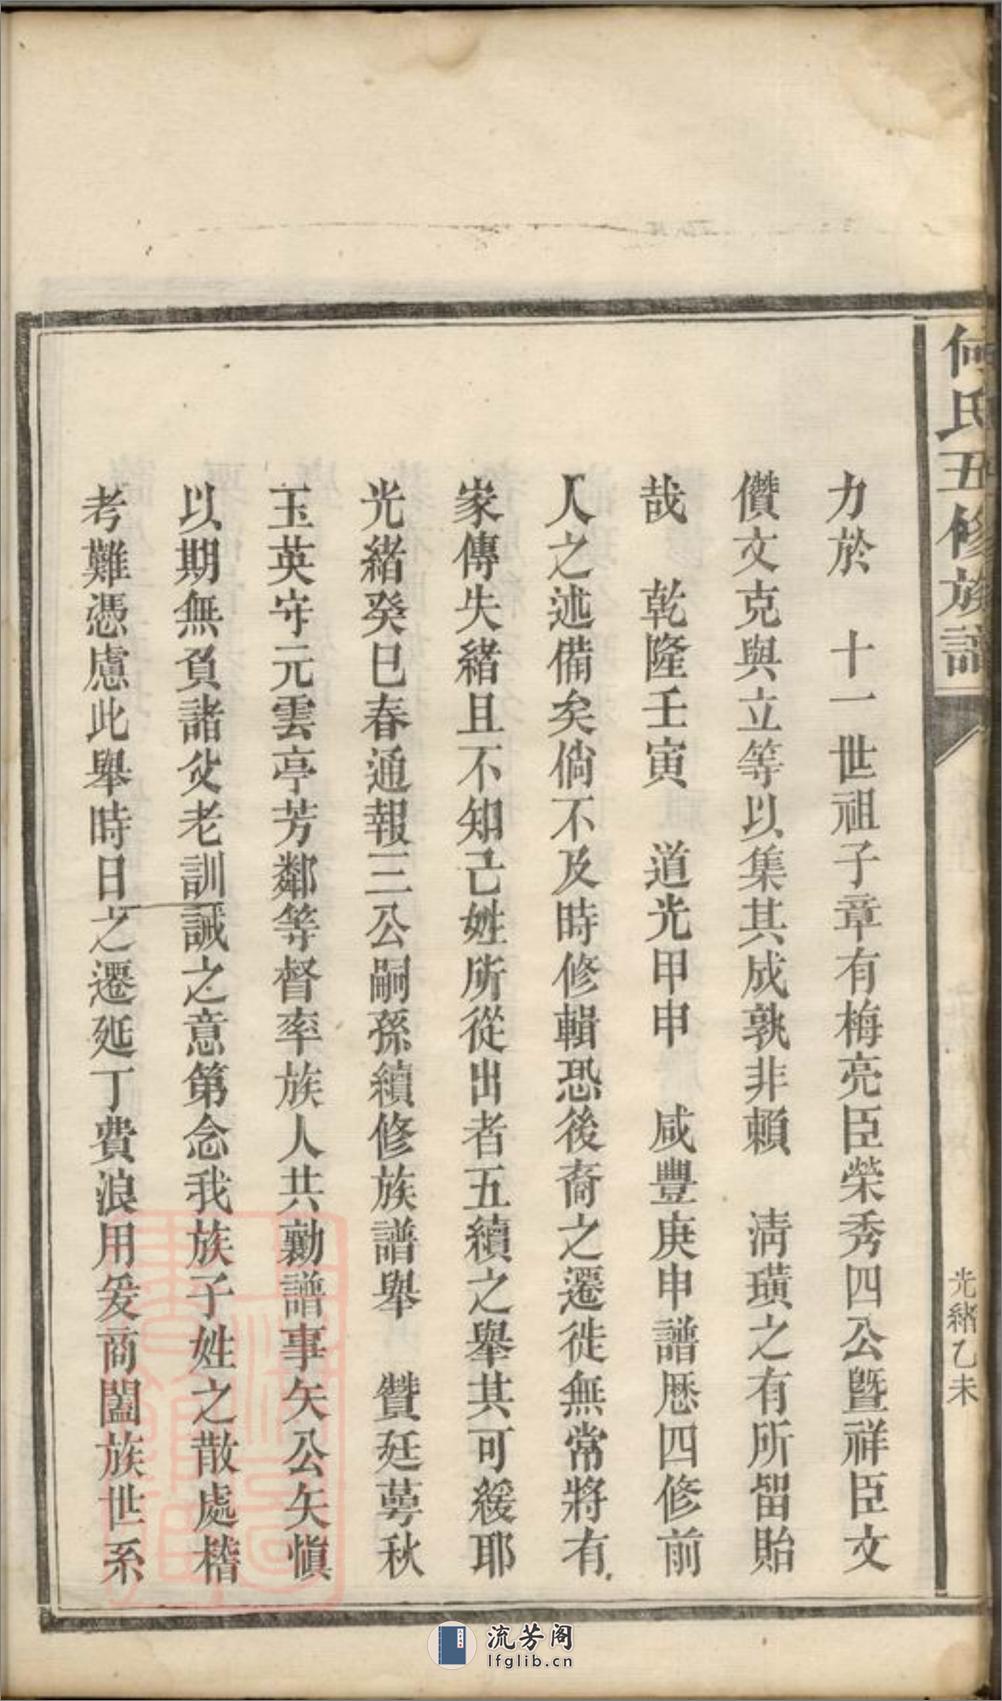 何氏五修族譜
光緒乙未
力於　十一世祖子章有梅亮臣榮秀四公暨祥臣文
儹文克與立等以集其成孰非賴　清璜之有所畱貽
哉　乾隆壬寅　道光甲申　咸豐庚申譜歷四修前
人之述備矣倘不及時修輯恐後裔之遷徙無常將有
家傳失緒且不知己姓所從出者五續之舉其可緩耶
光緒癸巳春通報三公嗣孫續修族譜舉　贊廷蕚秋
玉英守元雲亭芳鄰等督率族人共勷譜事矢公矢慎
以期無負諸父老訓誡之意第念我族子姓之散處楷
考難憑慮此舉時日之遷延丁費浪用爰商闔族世系
流芳阁
lfglib.cn